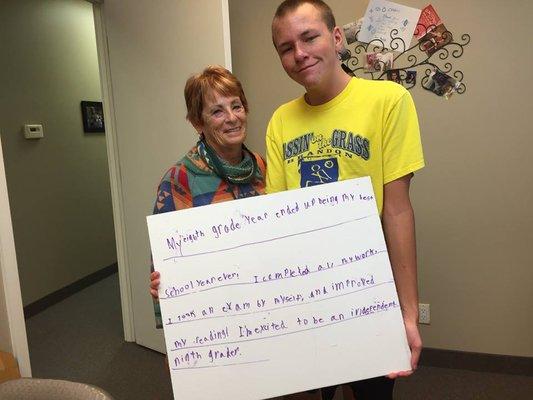 ASSIN' IN THE GRASS
BRANDON
My eighth grade year ended up being my best
school year ever. I completed all my work,
I took an exam by myself, and improved
my reading! I'm excited to be an independent
ninth grader.